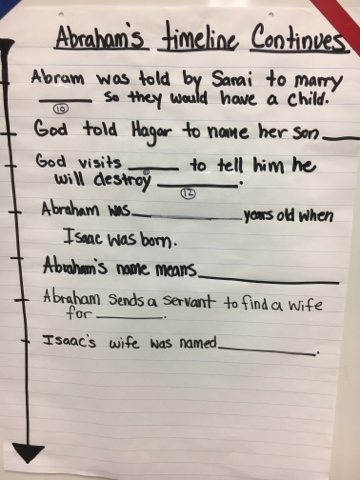 Abraham's timeline Continues
Abram was told by Sarai to marry
______ so they would have a child.
10
God told Hagar to name her son____
God visits ______ to tell him he
will destroy __________.
12
Abraham was______________years old when
Isaac was born.
Abraham's name means________________
Abraham sends a servant to find a wife
for _________.
Isaac's wife was named____________.